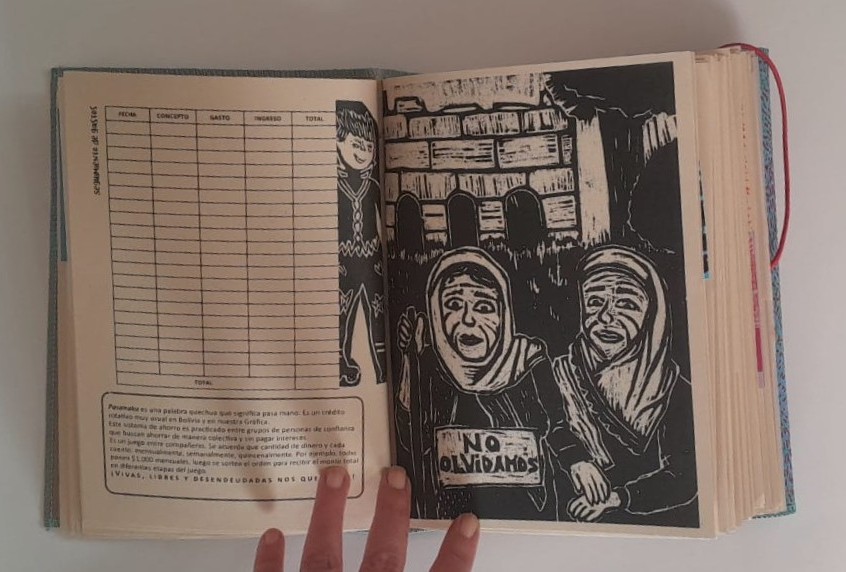 seguimiento de gastos
FECHA CONCEPTO GASTO INGRESO TOTAL
TOTAL
Pasanaku es una palabra quechua que significa pasa mano. Es un crédito
rotativo muy usual en Bolivia y en nuestra Gráfica.
Este sistema de ahorro es practicado entre grupos de personas de confianza
que buscan ahorrar de manera colectiva y sin pagar intereses.
Es un juego entre compañeros. Se acuerda que cantidad de dinero y cada
cuanto; mensualmente, semanalmente, quincenalmente. Por ejemplo, todos
ponen $1.000 mensuales, luego se sortea el orden para recibir el monto total
en diferentes etapas del juego.
¡VIVAS, LIBRES Y DESENDEUDADAS NOS
NO
OLVIDAMOS